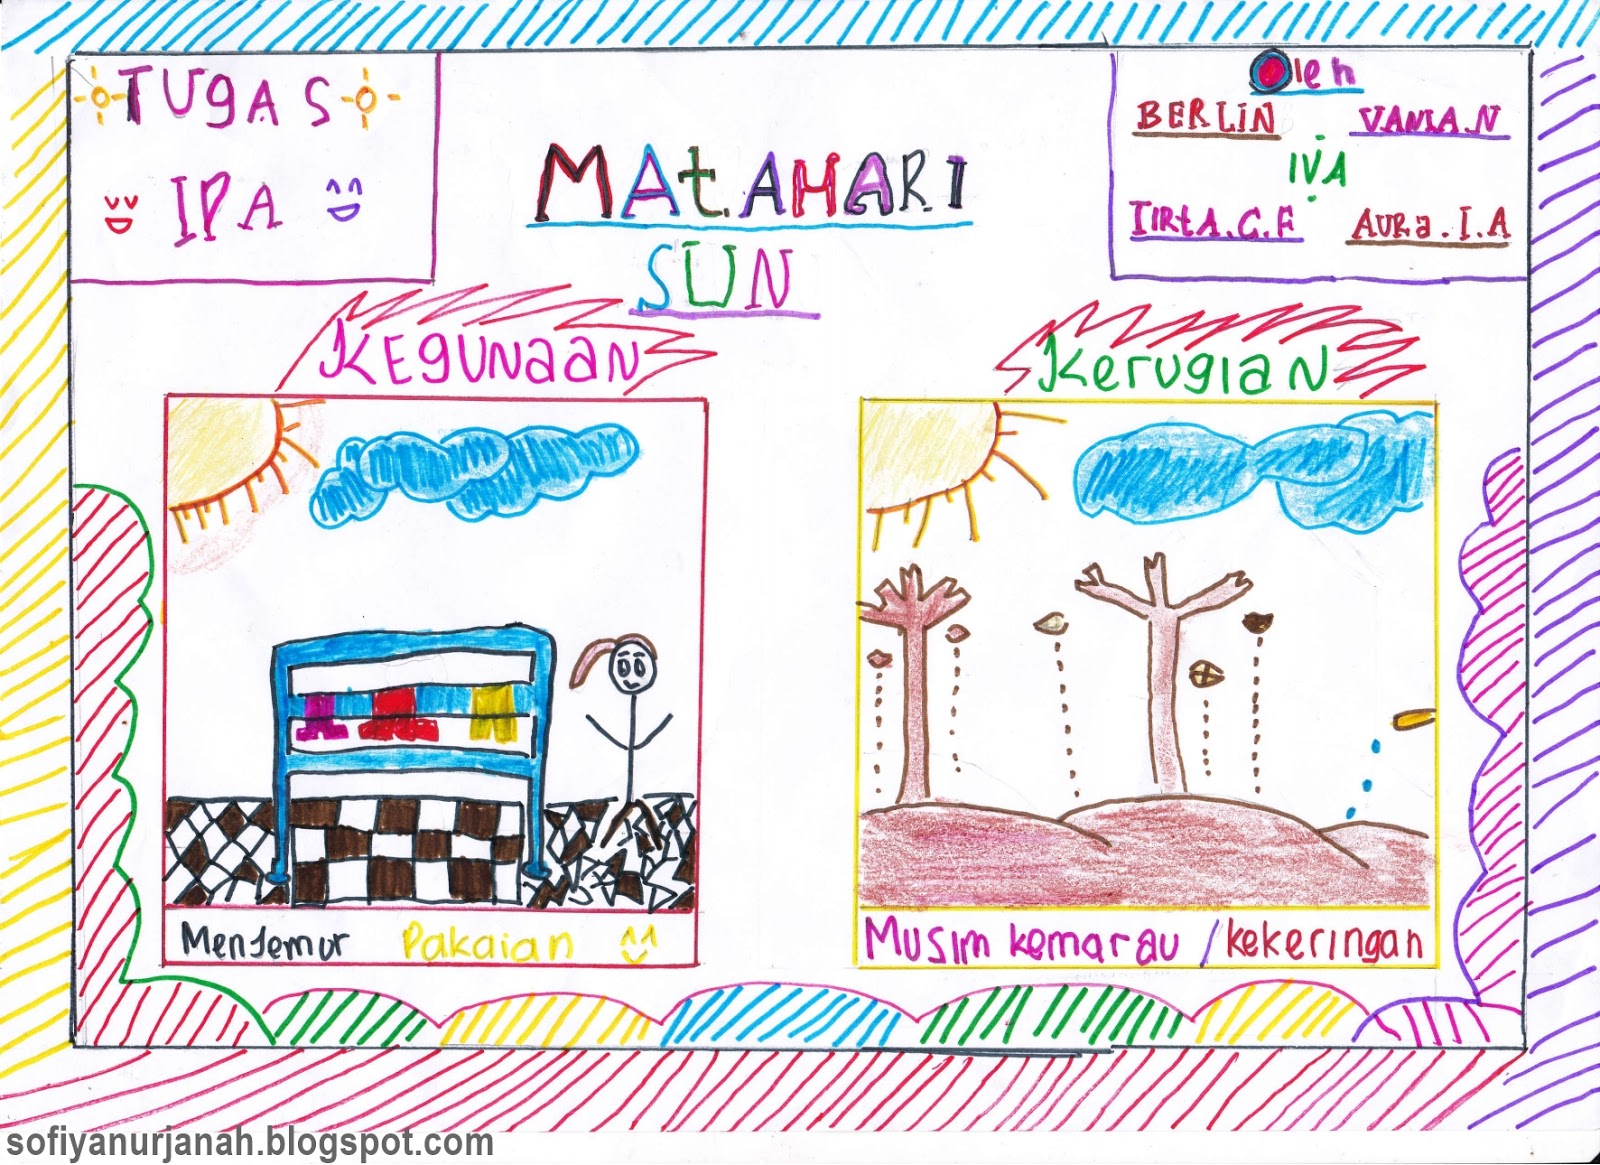 TUgAS
IPA
MAtAHARI
SUN
Oleh
BERLIN
VANIA.N
IVA
TIRtA.C.F
AURa.I.A
KEgUNaaN
Kerugian
MenJemur Pakaian
Musim kemarau / kekeringan
sofiyanurjanah.blogspot.com